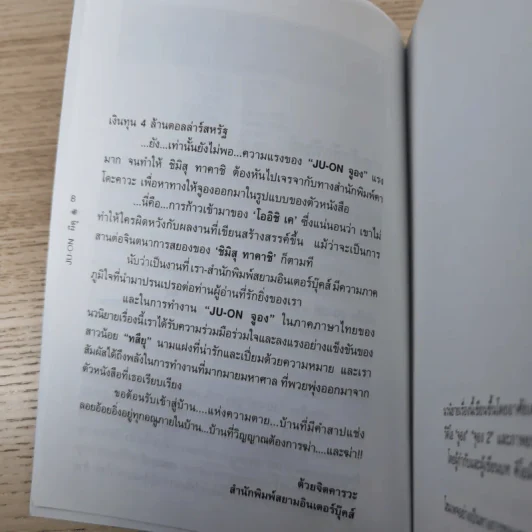 เงินทุน 4 ล้านดอลล่าร์สหรัฐ
...ยัง...เท่านั้นยังไม่พอ...ความแรงของ "JU-ON จูอง" แรง
มาก จนทำให้ ชิมิสุ ทาคาชิ ต้องหันไปเจรจากับทางสำนักพิมพ์คา
โดะคาวะ เพื่อหาทางให้จูองออกมาในรูปแบบของตัวหนังสือ
...นี่คือ...การก้าวเข้ามาของ 'โออิชิ เค' ซึ่งแน่นอนว่า เขาไม่
ทำให้ใครผิดหวังกับผลงานที่เขียนสร้างสรรค์ขึ้น แม้ว่าจะเป็นการ
สานต่อจินตนาการสยองของ 'ชิมิสุ ทาคาชิ' ก็ตามที
นับว่าเป็นงานที่ เรา-สำนักพิมพ์สยามอินเตอร์บุ๊คส์ มีความภาค
ภูมิใจที่นำมาปรนเปรอต่อท่านผู้อ่านที่รักยิ่งของเรา
และในการทำงาน "JU-ON จูอง" ในภาคภาษาไทยของ
นวนิยายเรื่องนี้เราได้รับความร่วมมือร่วมใจและลงแรงอย่างแข็งขันของ
สาวน้อย "ทสึยุ" นามแฝงที่น่ารักและเปี่ยมด้วยความหมาย และเรา
สัมผัสได้ถึงพลังในการทำงานที่มากมายมหาศาล ที่พวยพุ่งออกมาจาก
ตัวหนังสือที่เธอเรียบเรียง
ขอต้อนรับเข้าสู่บ้าน....แห่งความตาย...บ้านที่มีคำสาปแช่ง
ลอยอ้อยอิ่งอยู่ทุกอณูภายในบ้าน...บ้านที่วิญญาณต้องการฆ่า....และฆ่า!!
ด้วยจิตคารวะ
สำนักพิมพ์สยามอินเตอร์บุ๊คส์
JU-ON